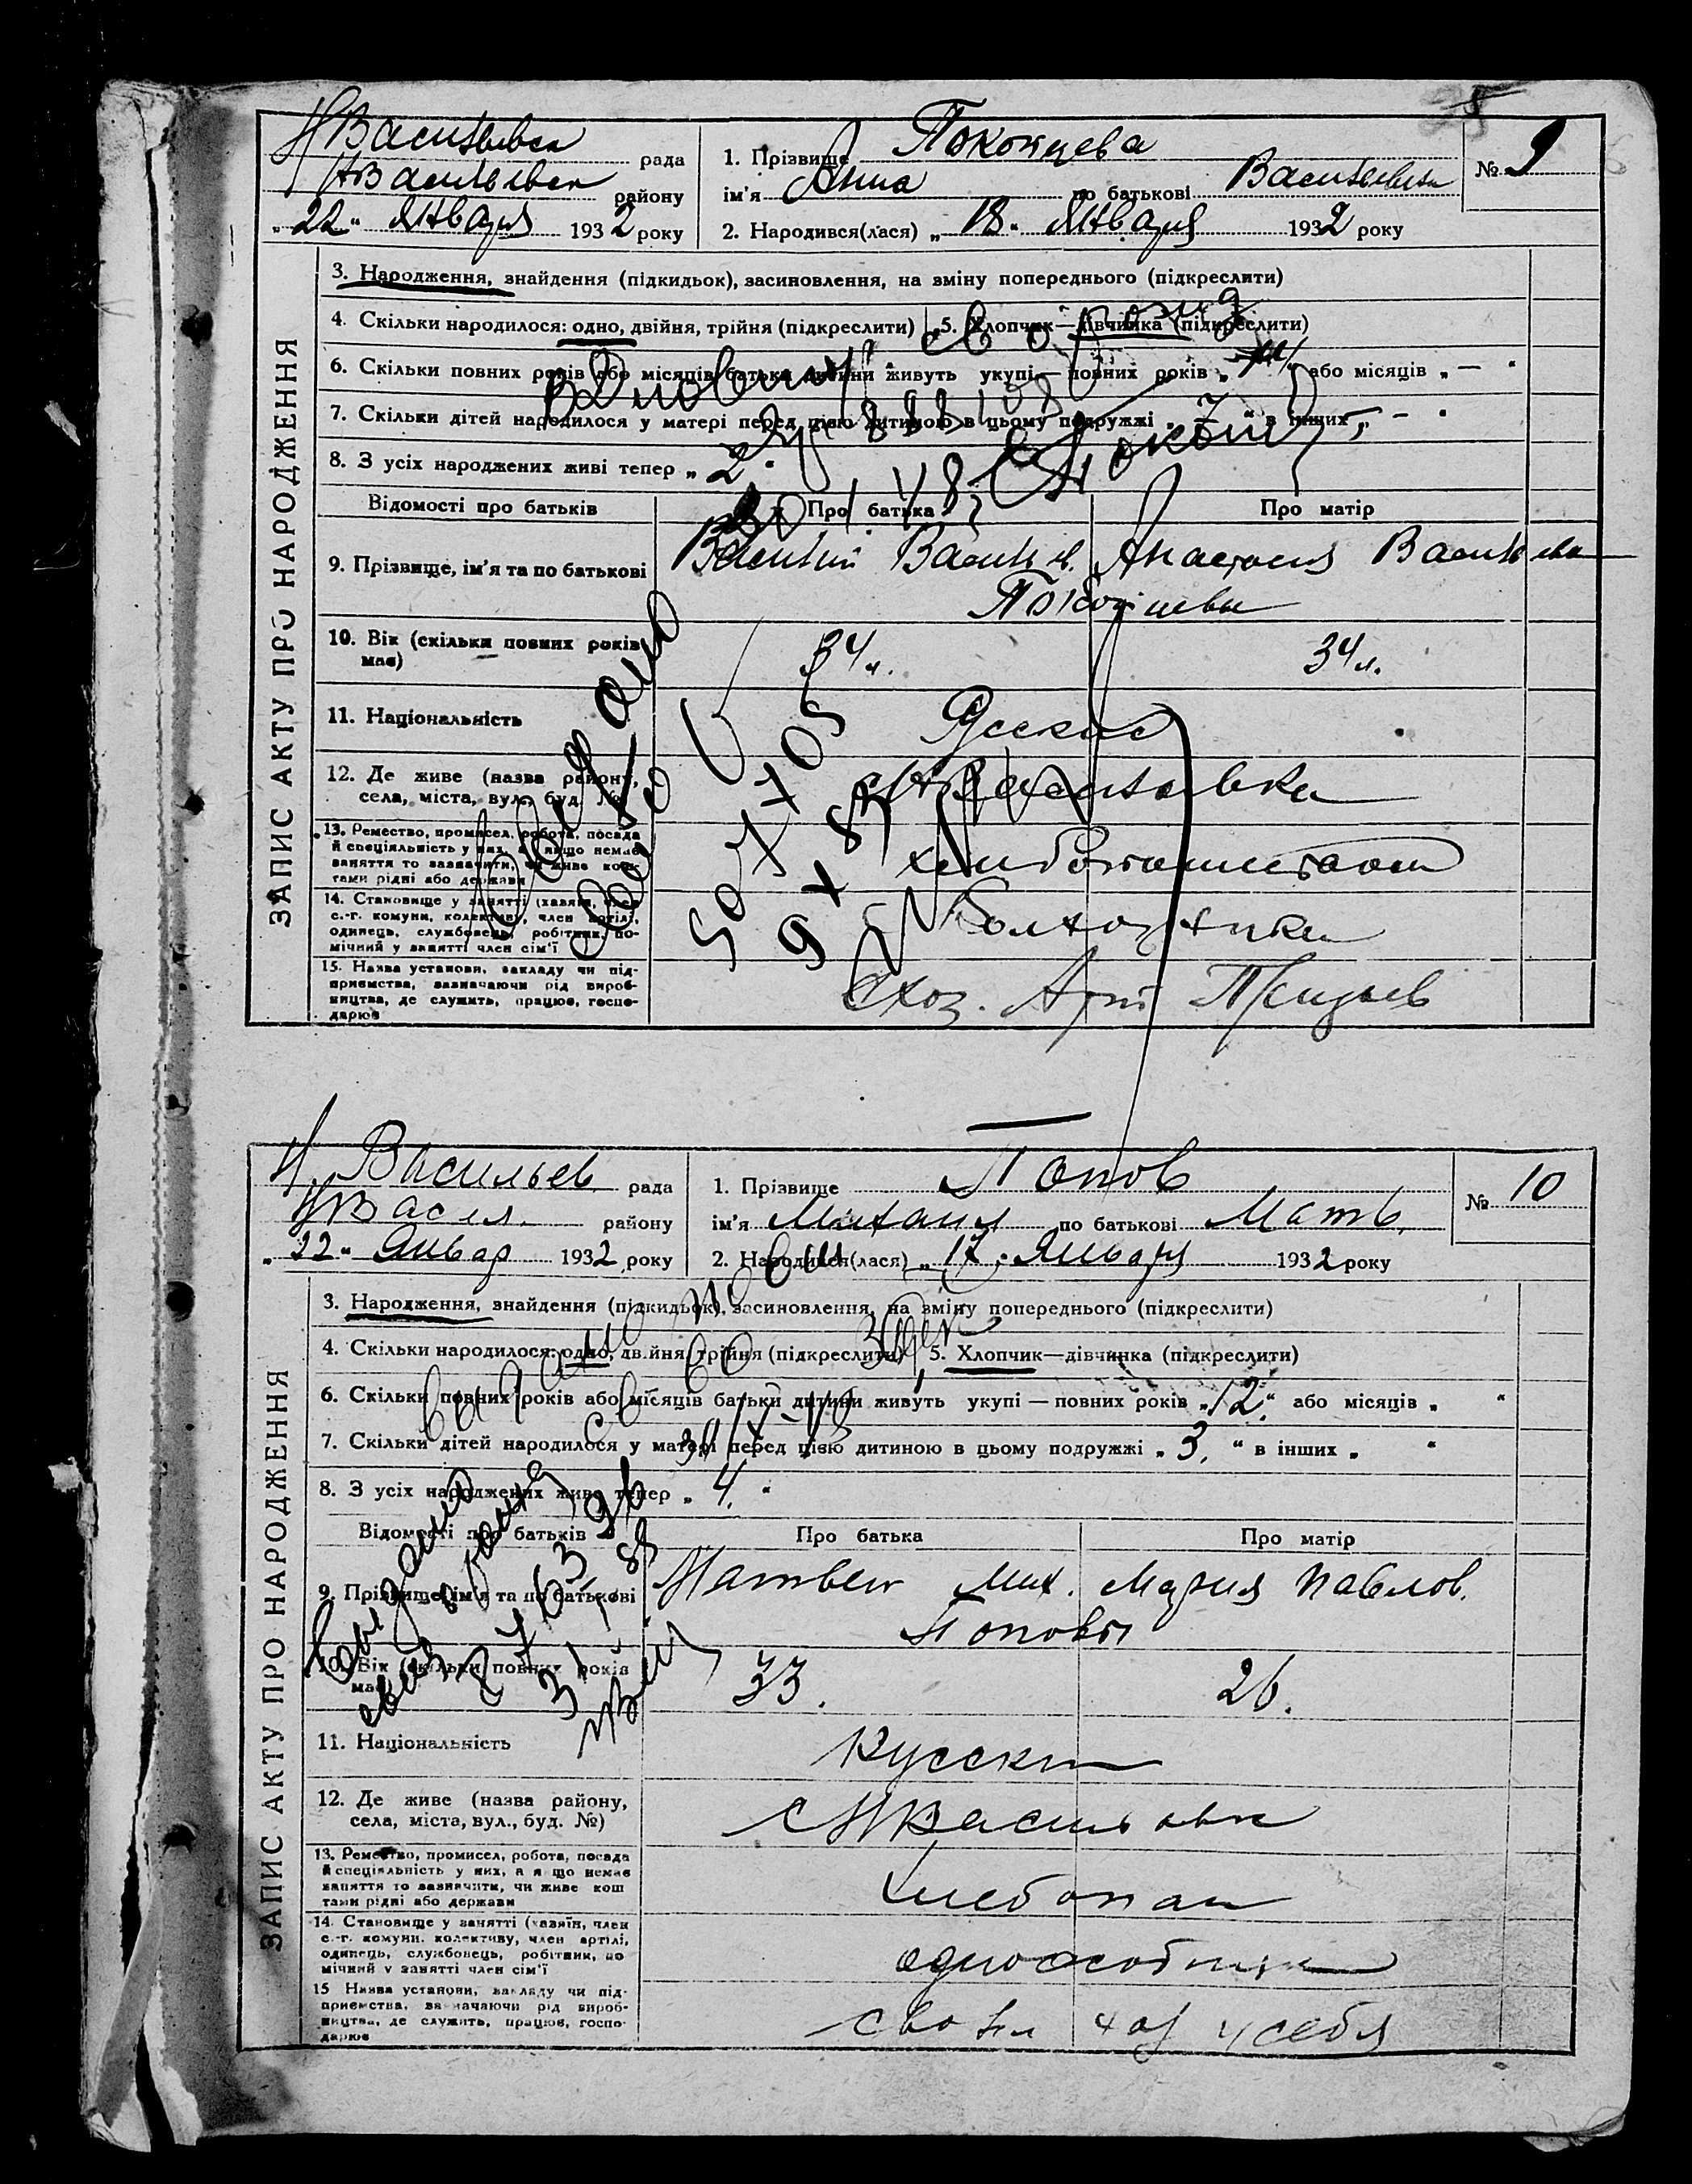 НВасильевск рада
НВасильевск району
„22“ Января 1932 року
1. Прізвище Покотцева
ім'я Анна по батькові Васильевна
2. Народився(лася) „18“ Января 1932 року
№ 9
ЗАПИС АКТУ ПРО НАРОДЖЕННЯ
3. Народження, знайдення (підкидьок), засиновлення, на зміну попереднього (підкреслити)
4. Скільки народилося: одно, двійня, трійня (підкреслити) 5. Хлопчик—дівчинка (підкреслити)
6. Скільки повних років або місяців батьки дитини живуть укупі — повних років „ “ або місяців „ — “
7. Скільки дітей народилося у матері перед цією дитиною в цьому подружжі „ 7 “ в інших „ - “
8. З усіх народжених живі тепер „ 2 “
Відомості про батьків Про батька Про матір
9. Прізвище, ім'я та по батькові Василий Василь в. Анастасия Васильевна
10. Вік (скільки повних років має) 34 л. 34 л.
11. Національність Русские
12. Де живе (назва району, села, міста, вул., буд. №) с НВасильевка
13. Ремество, промисел, робота, посада й спеціяльність у них, а якщо немає заняття то зазначити, чи живе коштами рідні або держави
14. Становище у занятті (хазяїн, член с.-г. комуни, колективу, член артілі, одинець, службовець, робітник, помічний у занятті член сім'ї Колхозники
15. Назва установи, закладу чи підприємства, зазначаючи рід виробництва, де служить, працює, господарює Схоз. Арт
Выдано
9 X 85
Н. Васильев рада
НВасил. району
„22“ Январ 1932 року
1. Прізвище Попов
ім'я Михаил по батькові Матв.
2. Народився(лася) „17“ Января 1932 року
№ 10
ЗАПИС АКТУ ПРО НАРОДЖЕННЯ
3. Народження, знайдення (підкидьок), засиновлення, на зміну попереднього (підкреслити)
4. Скільки народилося: одно, двійня, трійня (підкреслити) 5. Хлопчик—дівчинка (підкреслити)
6. Скільки повних років або місяців батьки дитини живуть укупі — повних років „12“ або місяців „ “
7. Скільки дітей народилося у матері перед цією дитиною в цьому подружжі „ 3. “ в інших „ “
8. З усіх народжених живі тепер „ 4. “
Відомості про батьків Про батька Про матір
9. Прізвище, ім'я та по батькові Матвей Мих. Мария Павлов.
Поповы
10. Вік (скільки повних років має) 33. 26.
11. Національність Русские
12. Де живе (назва району, села, міста, вул., буд. №) с НВасильевка
13. Ремество, промисел, робота, посада й спеціяльність у них, а якщо немає заняття то зазначити, чи живе коштами рідні або держави Хлебопаш
14. Становище у занятті (хазяїн, член с.-г. комуни, колективу, член артілі, одинець, службовець, робітник, помічний у занятті член сім'ї одноособники
15 Назва установи, закладу чи підприємства, зазначаючи рід виробництва, де служить, працює, господарює хоз у себя